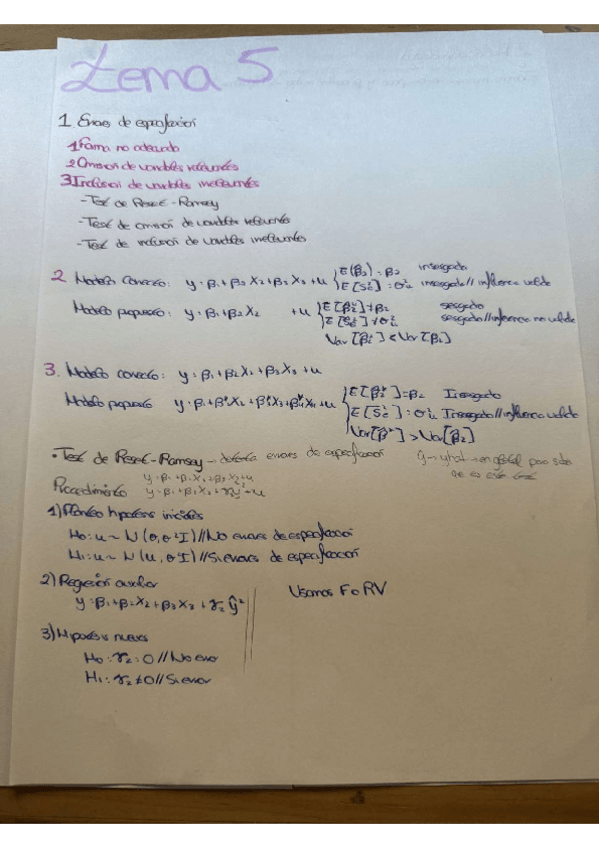 tema 5
1. Errores de especificación
1 Forma no adecuada
2 Omisión de variables relevantes
3 Inclusión de variables irrelevantes
- Test de Reset-Ramsey
- Test de omisión de variables relevantes
- Test de inclusión de variables irrelevantes
2. Modelo correcto: y = β1 + β2 X2 + β3 X3 + u } E(β2) = β2 insesgado
E[S²] = σ² insesgado // inferencia valida
Modelo propuesto: y = β1 + β2 X2 + u } E[β2*] ≠ β2 sesgado
sesgado // inferencia no valida
Var[β2*] < Var[β2]
3. Modelo correcto: y = β1 + β2 X2 + β3 X3 + u
Modelo propuesto y = β1 + β2* X2 + β3* X3 + β4* X4 + u } E[β2*] = β2 Insesgado
E[S²] = σ² Insesgado // inferencia valida
Var[β*] > Var[β2]
• Test de Reset-Ramsey – detecta errores de especificación
Procedimiento
1) Planteo hipótesis iniciales
Ho: u ~ N(0, σ²I) // No errores de especificación
H1: u ~ N(u, σ²I) // Si errores de especificación
2) Regresión auxiliar
y = β1 + β2 X2 + β3 X3 + γ2 ŷ²
Usamos F o RV
3) Hipótesis nuevas
Ho: γ2 = 0 // No error
H1: γ2 ≠ 0 // Si error